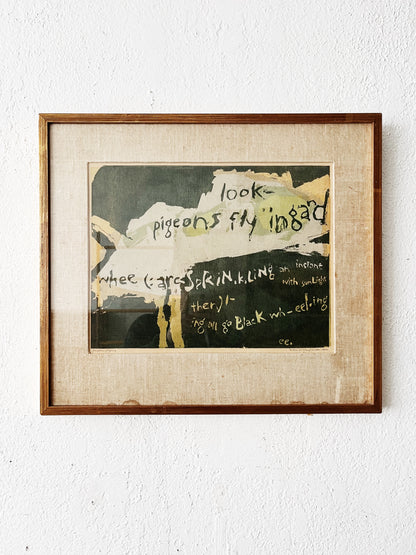 look-
pigeons fly ingand
whee(:are,SpRiN,k,LiNg an instant
with sunLight
then)!-
ing all go BlacK wh-eel-ing
ee.